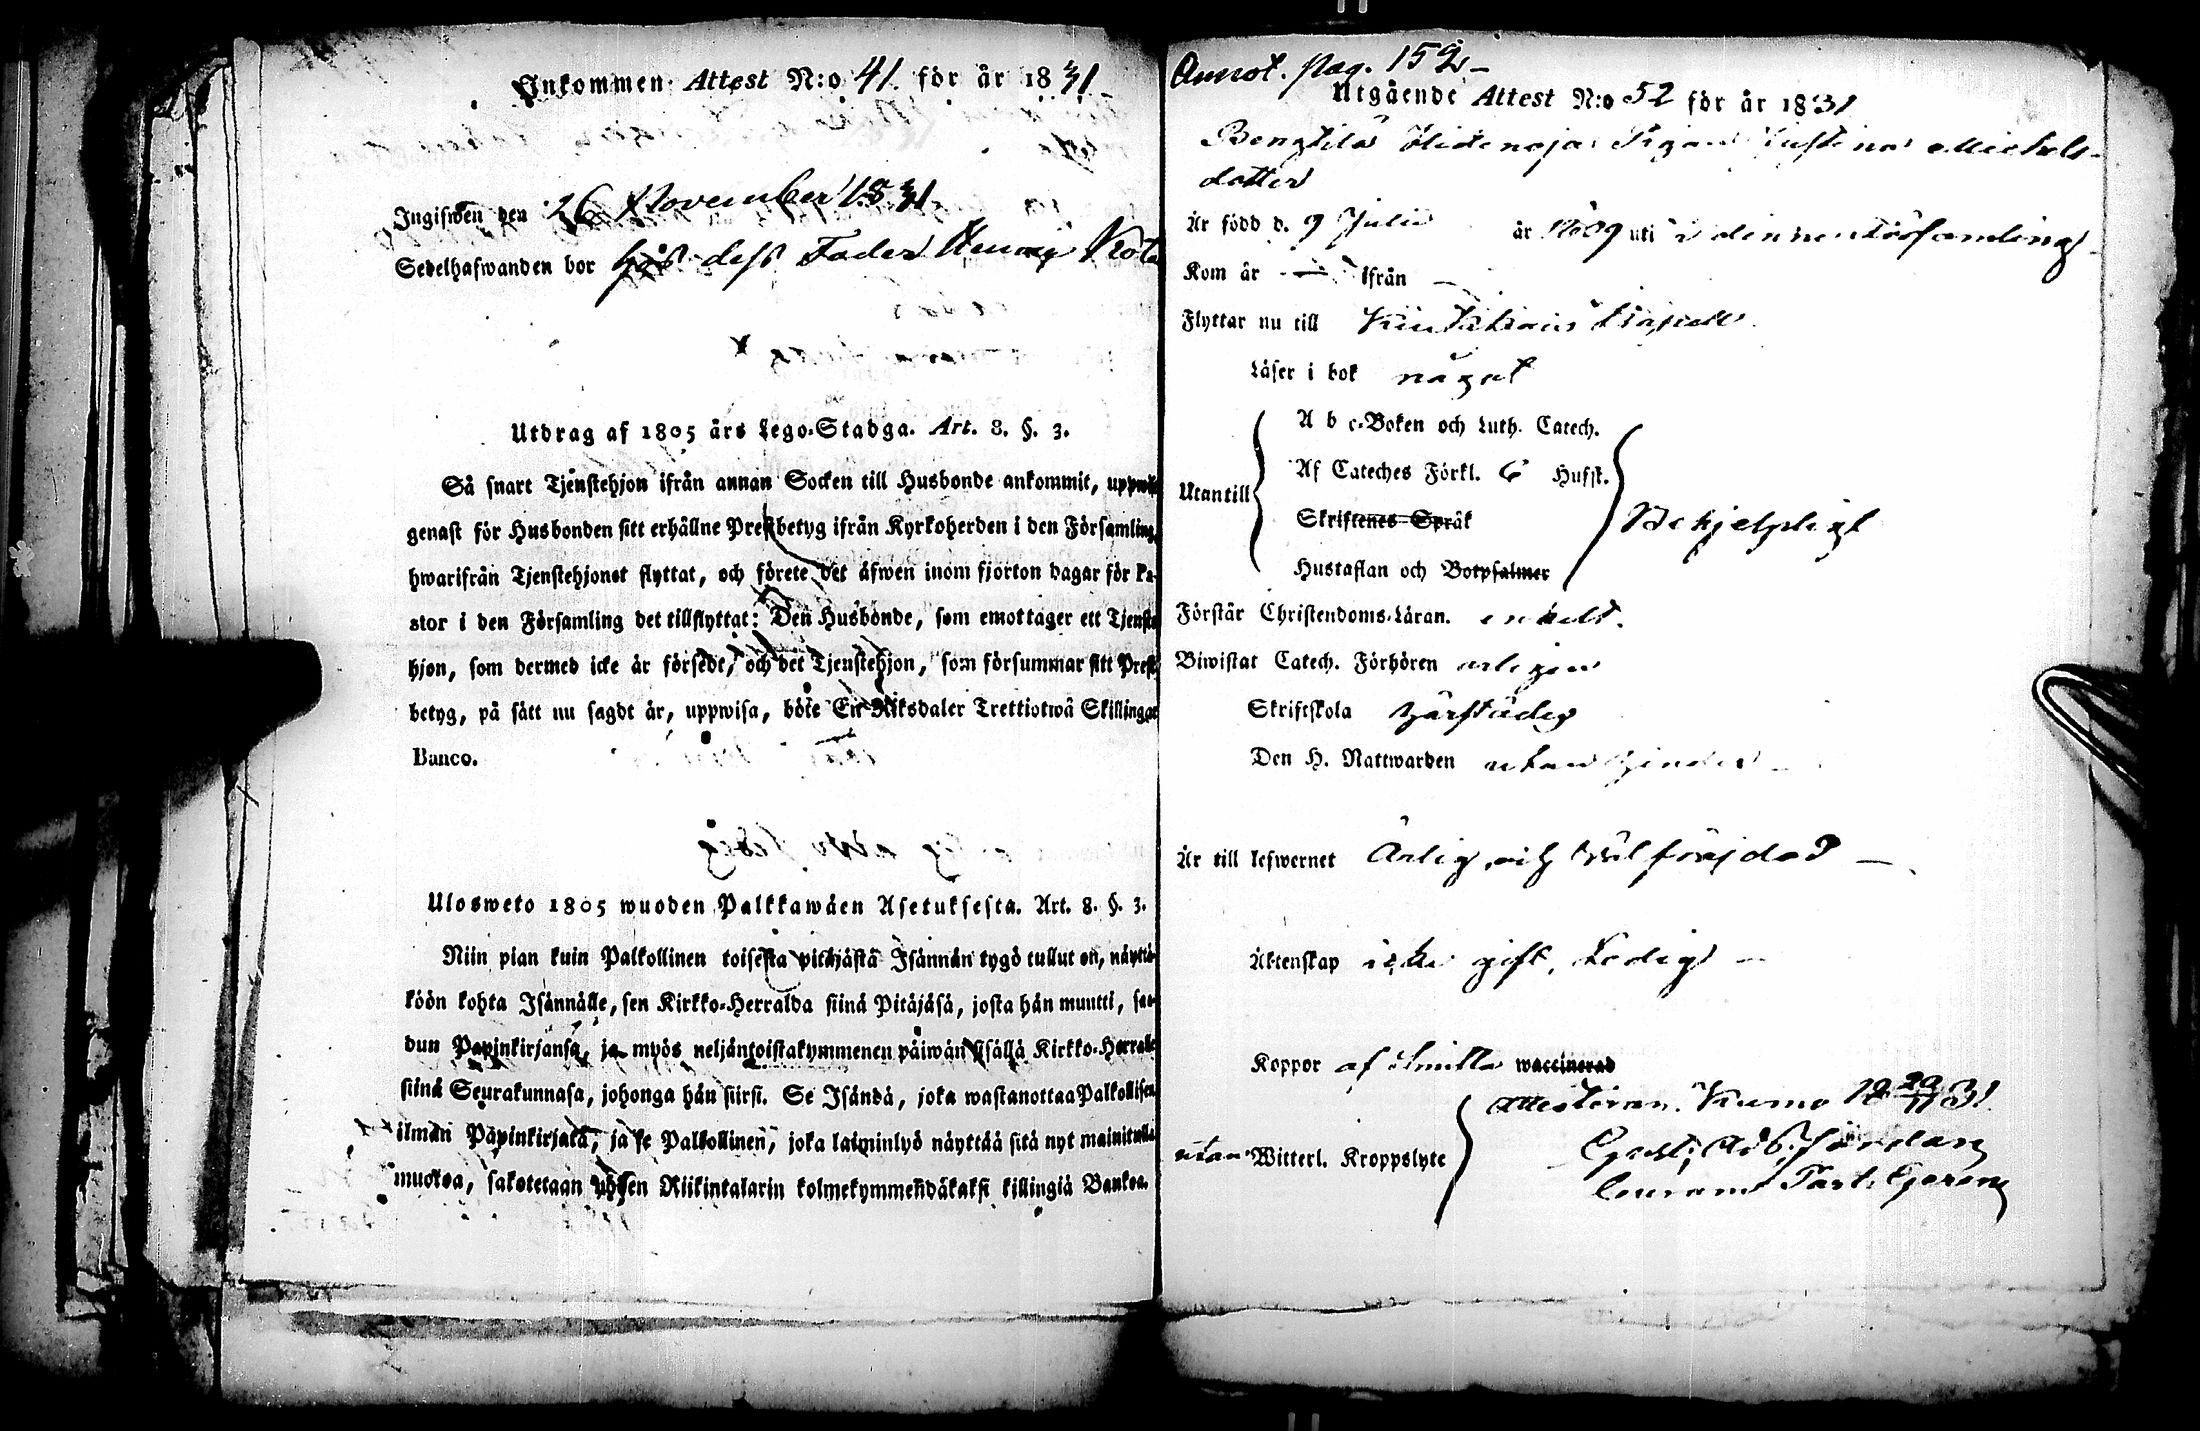 Inkommen Attest N:o 41. för år 1831
Ingifwen den 26 November 1831.
Sedelhafwanden bor hos dess Fader
Utdrag af 1805 års Lego-Stadga. Art. 8. §. 3.
Så snart Tjenstehjon ifrån annan Socken till Husbonde ankommit, uppwise
genast för Husbonden sitt erhållne Prestbetyg ifrån Kyrkoherden i den Församling,
hwarifrån Tjenstehjonet flyttat, och förete det äfwen inom fjorton dagar för Pa-
stor i den Församling det tillflyttat: Den Husbonde, som emottager ett Tjenste-
hjon, som dermed icke är försedt, och det Tjenstehjon, som försummar sitt Prest-
betyg, på sätt nu sagdt är, uppwisa, böte En Riksdaler Trettiotwå Skillingar
Banco.
Ulosweto 1805 wuoden Palkkawäen Asetuksesta. Art. 8. §. 3.
Niin pian kuin Palkollinen toisesta pitäjästä Isännän tygö tullut on, näyttä-
köön kohta Isännälle, sen Kirkko-Herralda siinä Pitäjäsä, josta hän muutti, saa-
dun Papinkirjansa, ja myös neljäntoistakymmenen päiwän sisällä Kirkko-Herralle
siinä Seurakunnasa, johonga hän siirsi. Se Isändä, joka wastanottaa Palkollisen
ilman Papinkirjata, ja se Palkollinen, joka laiminlyö näyttää sitä nyt mainitulla
muotoa, sakotetaan yhden Riikintalarin kolmekymmendäkaksi killingiä Bankoa.
Annot. pag. 152
Utgående Attest N:o 52 för år 1831
Bengtilä Hidenoja Pigan Justina Michels-
dotter
Är född d. 9 Julii år 1809 uti denne Församling
Kom år — ifrån —
Flyttar nu till Kiukais Capell
Läser i bok något
Utantill
A b c-Boken och Luth. Catech.
Af Cateches Förkl. 6 Husst.
Skriftenes Språk
Hustaflan och Botpsalmer
Behjelpligt
Förstår Christendoms-Läran. enkelt.
Biwistat Catech. Förhören årligen
Skriftskola härstädes
Den H. Nattwarden utan hinder
Är till lefwernet Ärlig och wälfräjdad —
Äktenskap icke gift, Ledig —
Koppor af Smitta waccinerad
utan Witterl. Kroppslyte
Attesteras. Kumo 29/11 31.